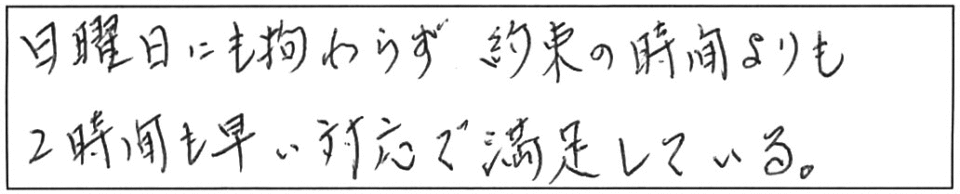 日曜日にも拘わらず 約束の時間よりも
2時間も早い対応で満足している。